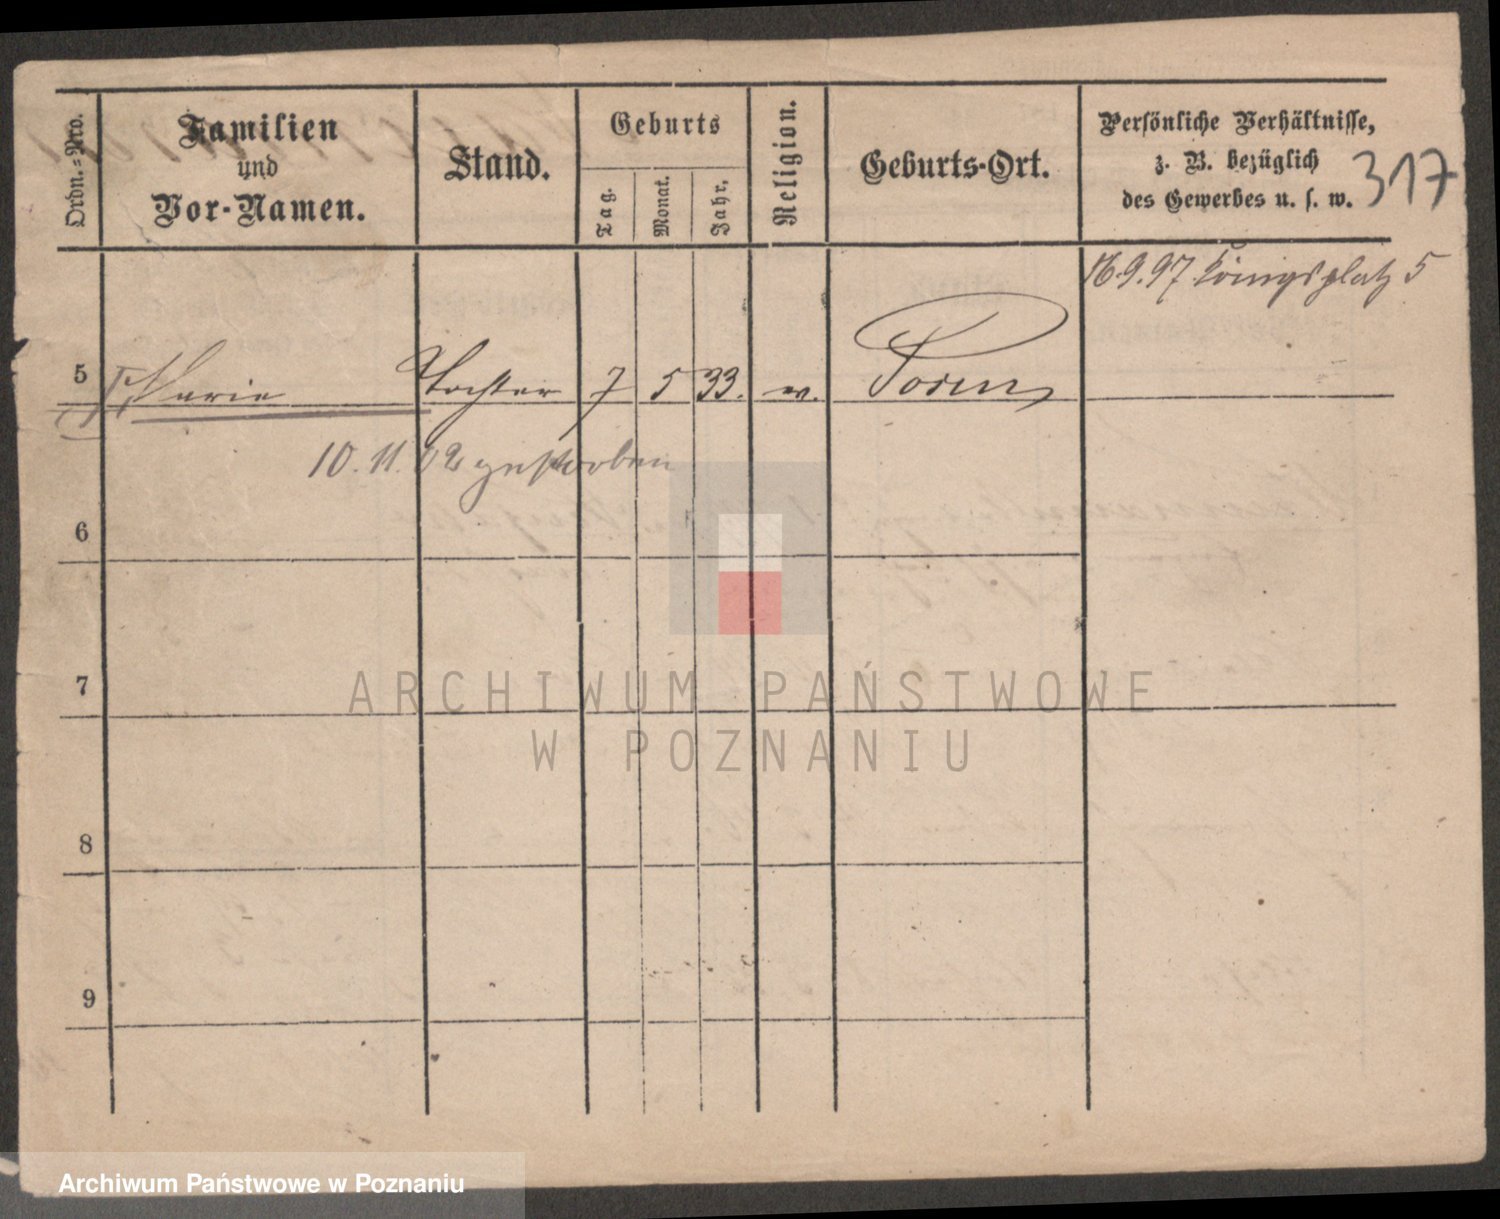 Ordn.=Nro.
Familien
und
Vor-Namen.
Stand.
Geburts
Tag.
Monat.
Jahr.
Religion.
Geburts-Ort.
Persönliche Verhältnisse,
z. B. bezüglich
des Gewerbes u. s. w.
317
16.9.97 Königsplatz 5
5 Marie Tochter 7 5 33. w. Posen
10. 11. 02 gestorben
6
7
8
9
ARCHIWUM PAŃSTWOWE
W POZNANIU
Archiwum Państwowe w Poznaniu